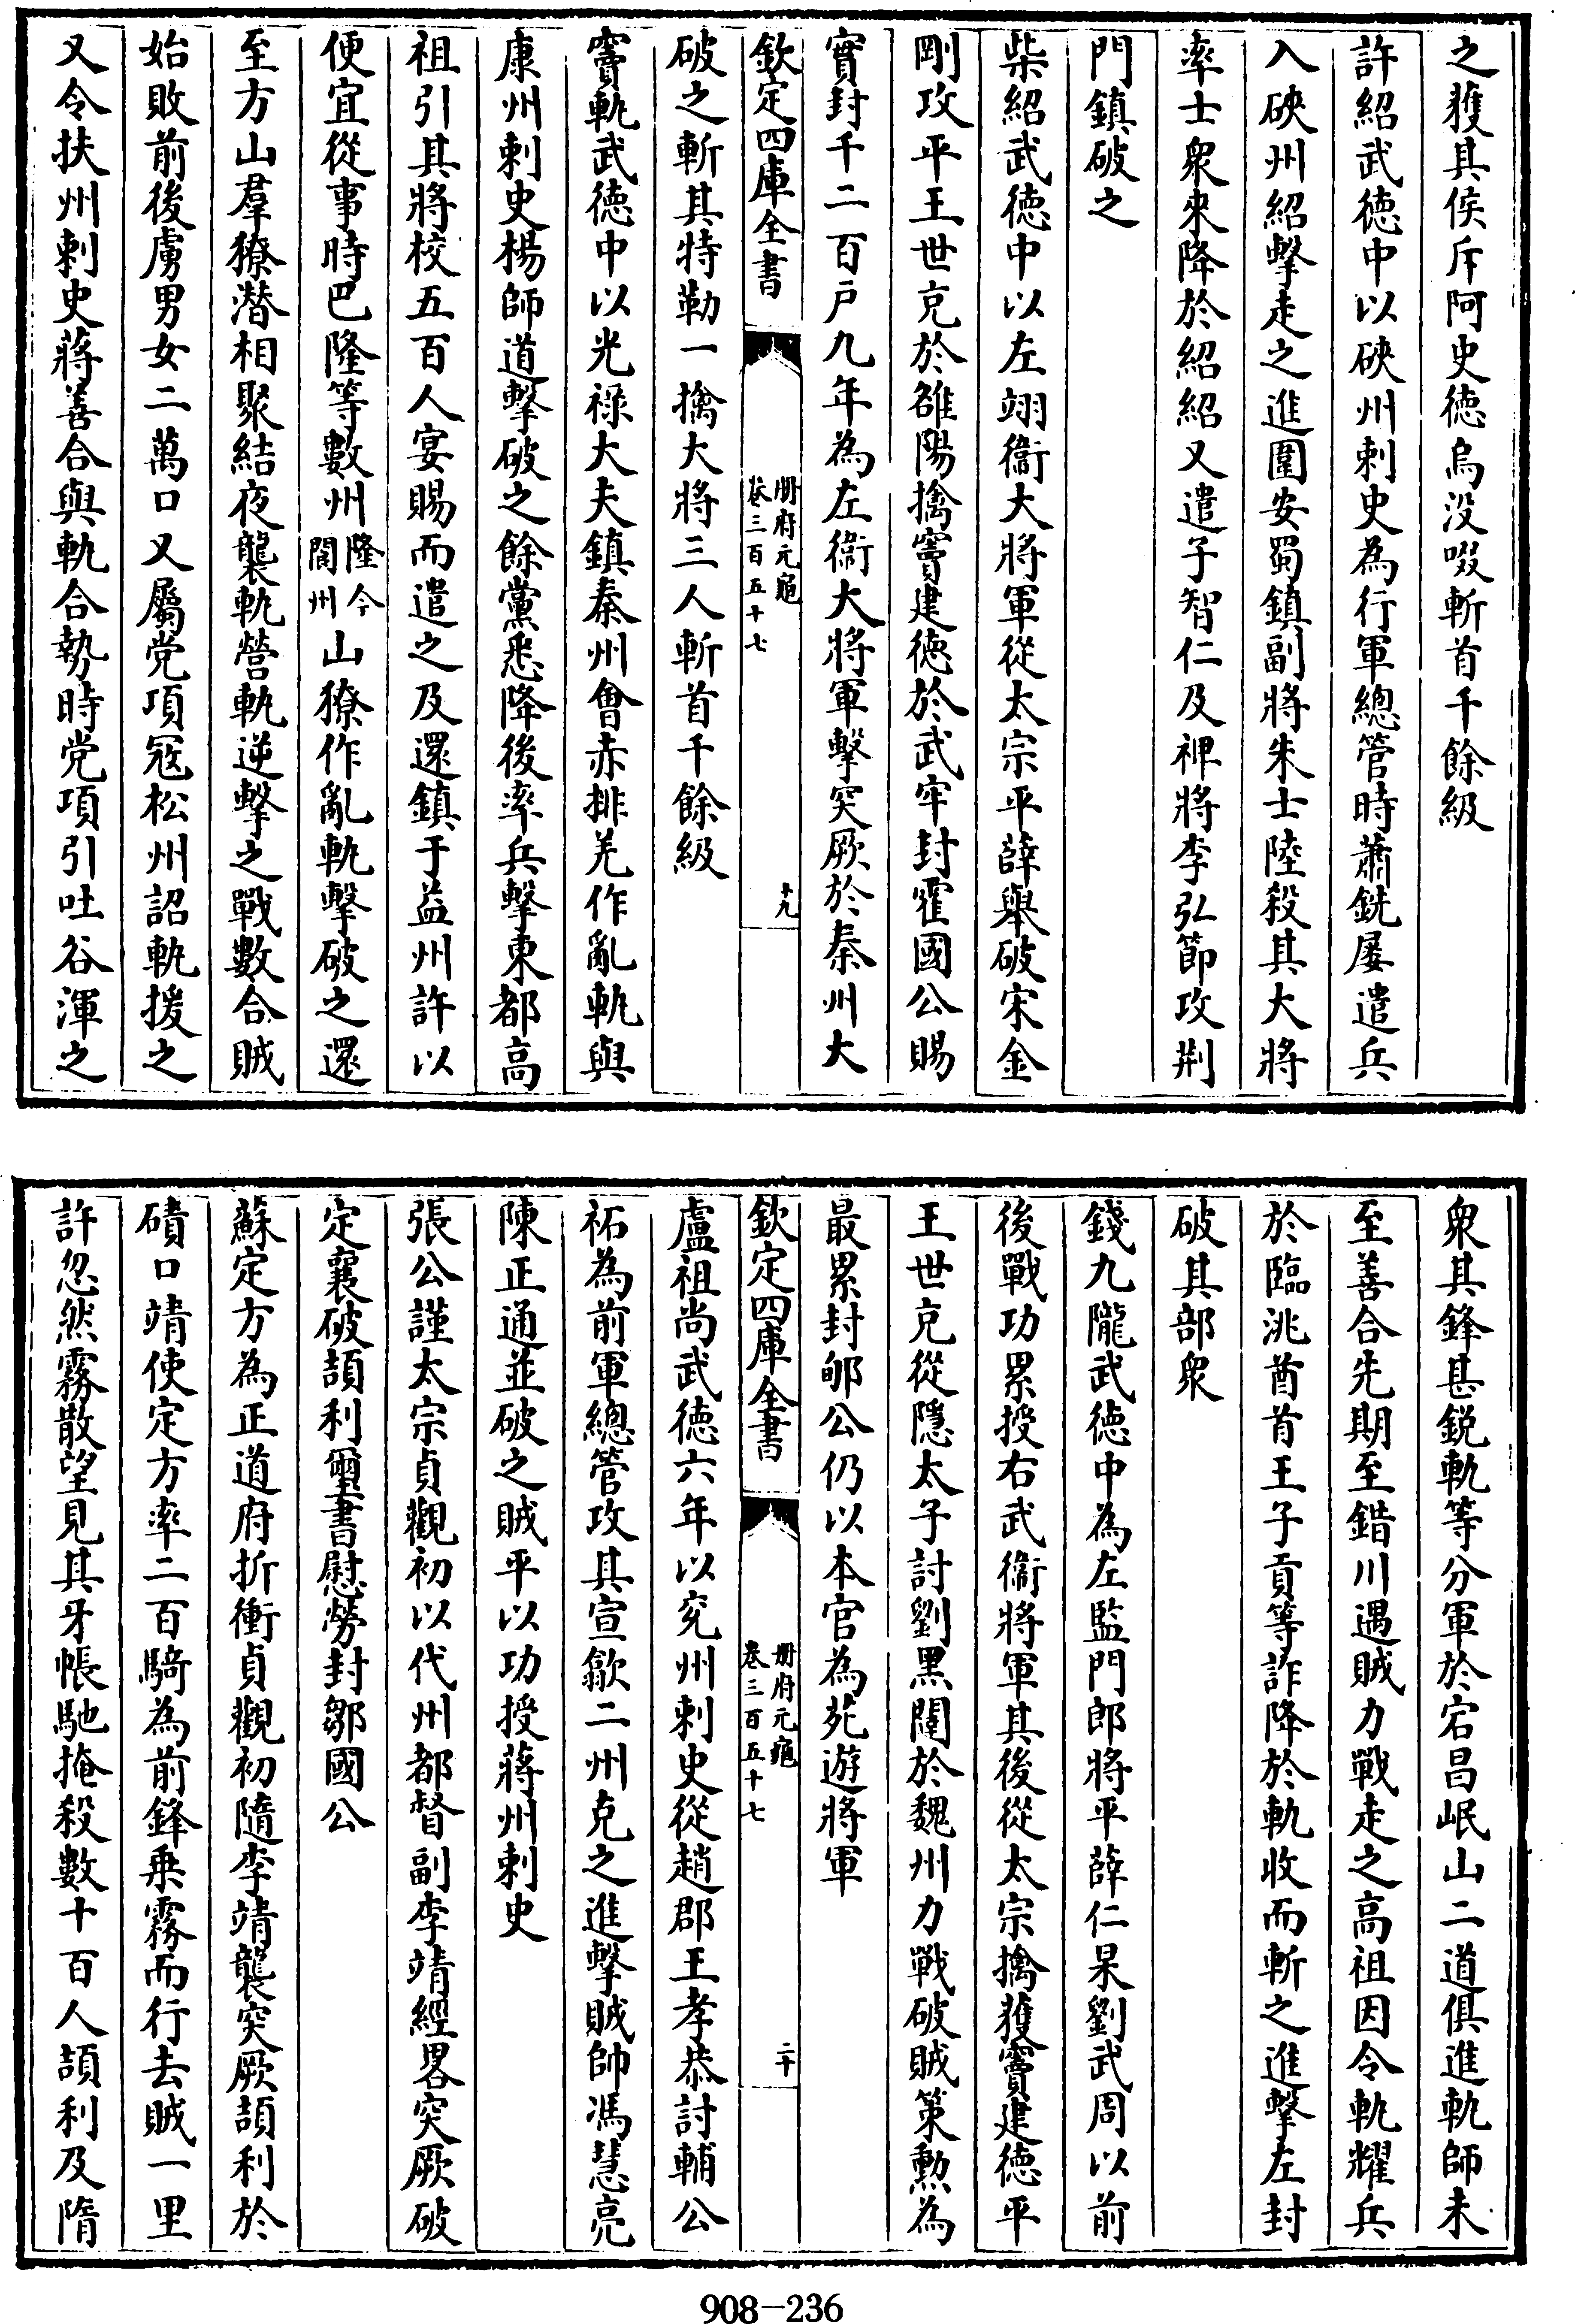 之獲其俟斥阿史徳烏没啜斬首千餘級
許紹武徳中以硤州刺史為行軍總管時蕭銑屡遣兵
入硤州紹擊走之進圍安蜀鎮副將朱士陸殺其大將
率士衆來降於紹紹又遣子智仁及裨將李弘節攻荆
門鎮破之
柴紹武徳中以左翊衞大將軍從太宗平薛舉破宋金
剛攻平王世充於雒陽擒竇建徳於武牢封霍國公賜
實封千二百户九年為左衞大將軍擊突厥於秦州大
欽定四庫全書
册府元龜
卷三百五十七
十九
破之斬其特勒一擒大將三人斬首千餘級
竇軌武徳中以光禄大夫鎮秦州會赤排羌作亂軌與
康州刺史楊師道擊破之餘黨悉降後率兵擊東都高
祖引其將校五百人宴賜而遣之及還鎮于益州許以
便宜從事時巴隆等數州隆今閬州山獠作亂軌擊破之還
至方山羣獠潛相聚結夜襲軌營軌逆擊之戰數合賊
始敗前後虜男女二萬口又屬党項冦松州詔軌援之
又令扶州刺史蔣善合與軌合勢時党項引吐谷渾之
衆其鋒甚鋭軌等分軍於宕昌岷山二道俱進軌師未
至善合先期至錯川遇賊力戰走之高祖因令軌耀兵
於臨洮酋首王子貢等詐降於軌收而斬之進擊左封
破其部衆
錢九隴武徳中為左監門郎將平薛仁杲劉武周以前
後戰功累授右武衞將軍其後從太宗擒獲竇建徳平
王世充從隱太子討劉黑闥於魏州力戰破賊策勲為
最累封郇公仍以本官為苑遊將軍
欽定四庫全書
册府元龜
卷三百五十七
二十
盧祖尚武徳六年以兖州刺史從趙郡王孝恭討輔公
祏為前軍總管攻其宣歙二州克之進擊賊帥馮慧亮
陳正通並破之賊平以功授蔣州刺史
張公謹太宗貞觀初以代州都督副李靖經畧突厥破
定襄破頡利璽書慰勞封鄒國公
蘇定方為正道府折衝貞觀初隨李靖襲突厥頡利於
磧口靖使定方率二百騎為前鋒乗霧而行去賊一里
許忽然霧散望見其牙帳馳掩殺數十百人頡利及隋
908-236